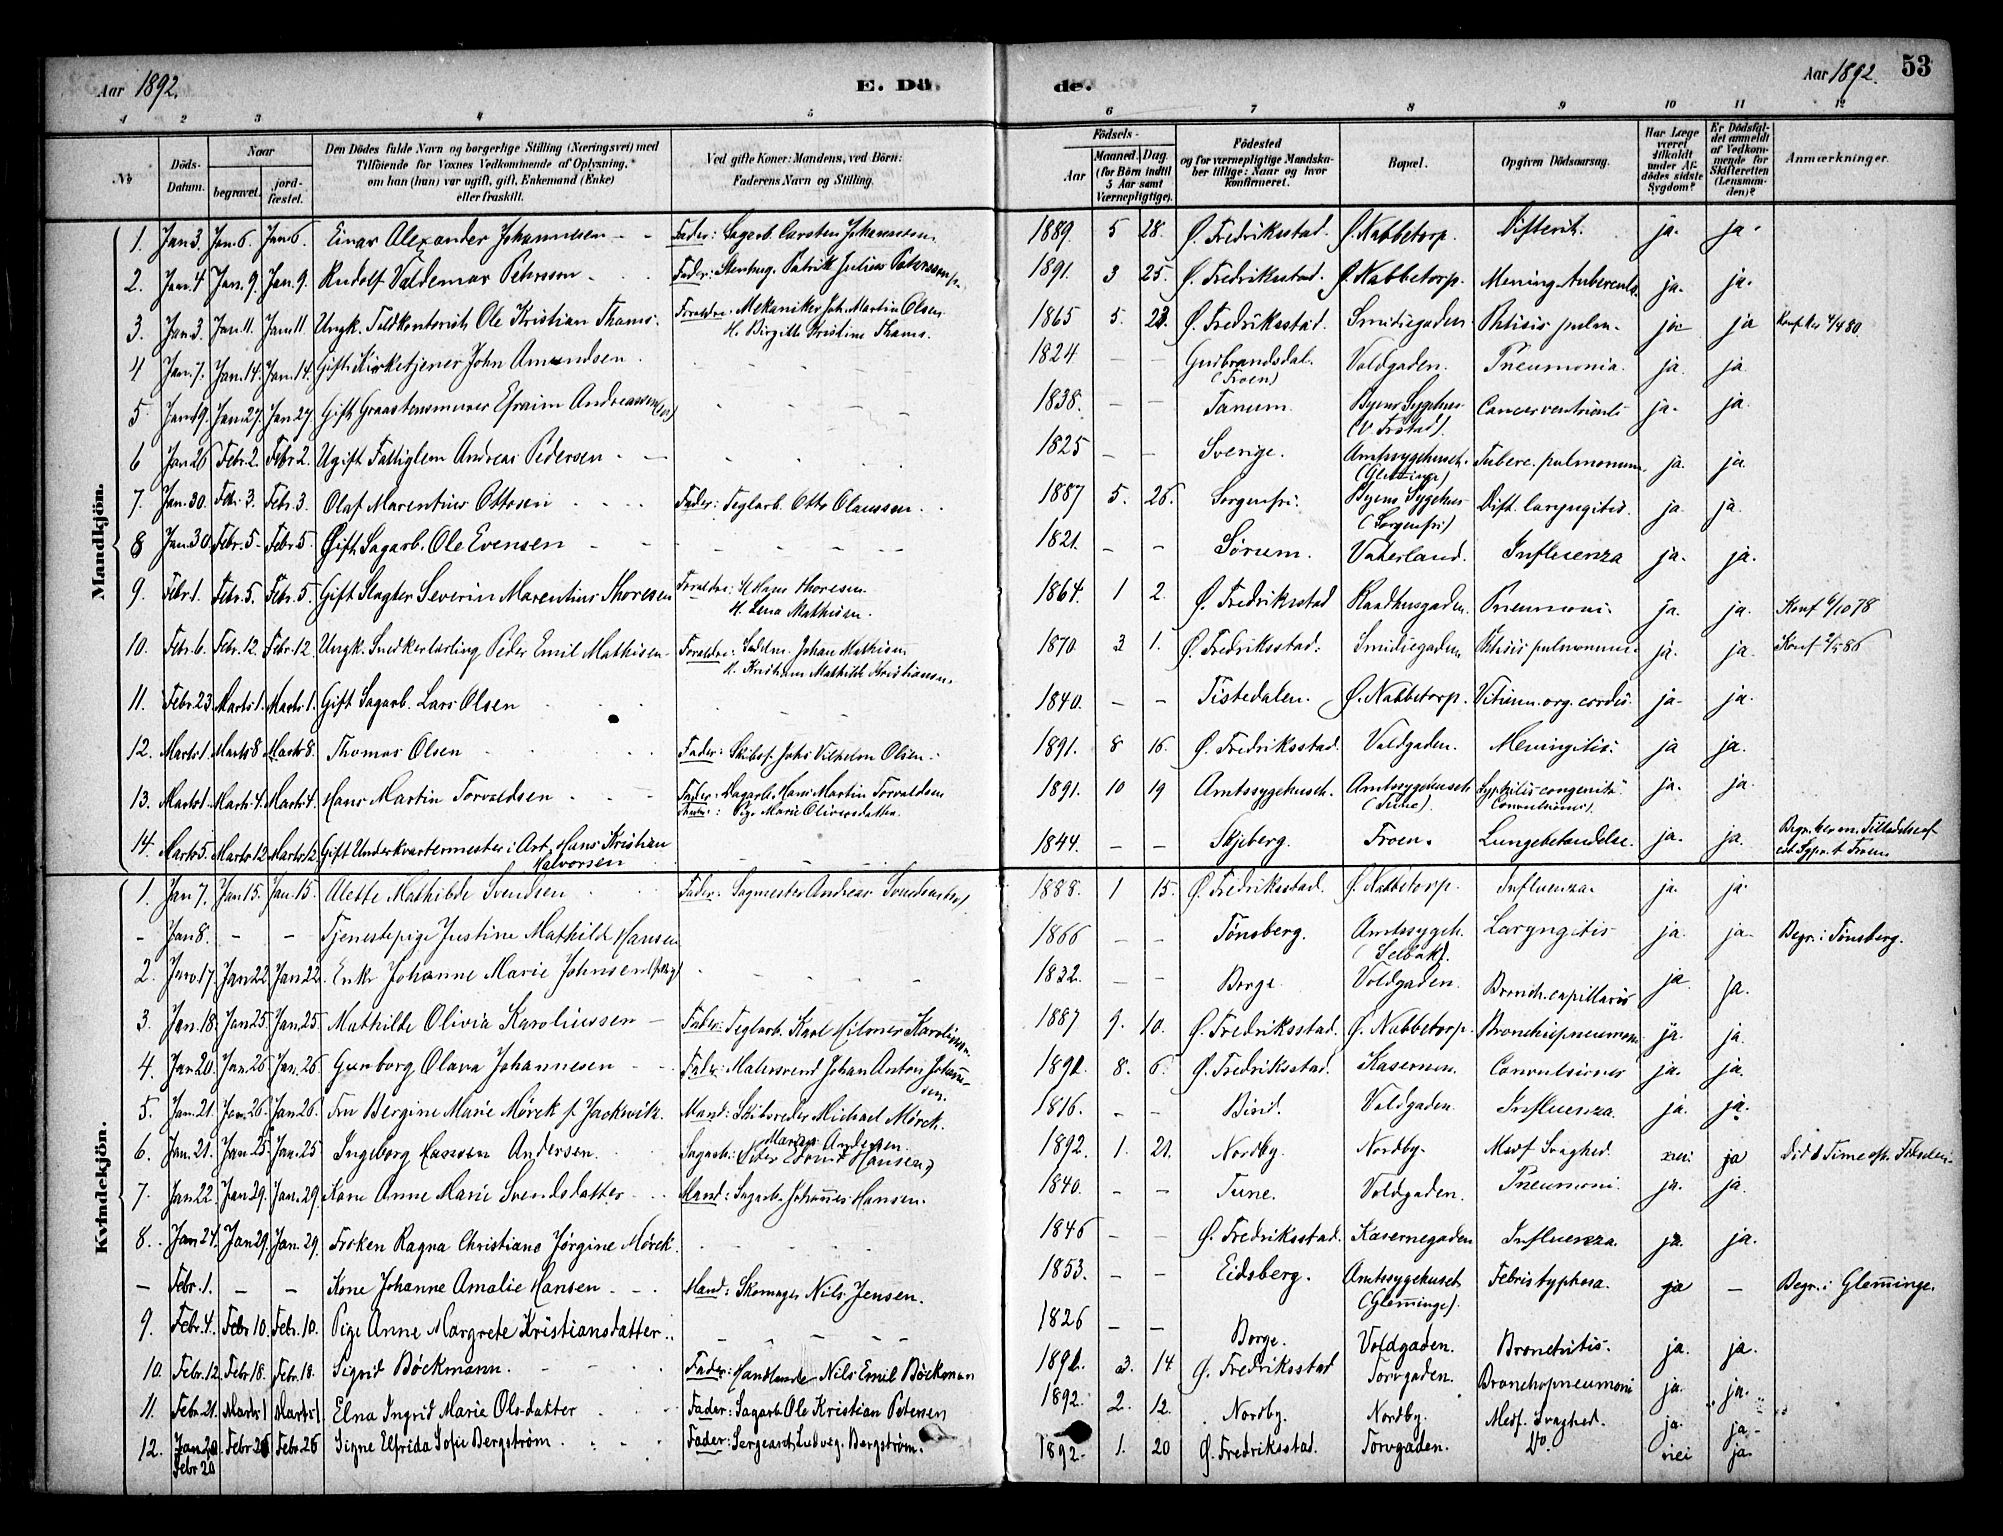 Aar 1892. E. Dö de. Aar 1892. 53
1 2 3 4 5 6 7 8 9 10 11 12
№ Döds-Datum. Naar begravet. jordfæstet. Den Dödes fulde Navn og borgerlige Stilling (Næringsvei) med Tilföiende for Voxnes Vedkommende af Oplysning, om han (hun) var ugift, gift, Enkemand (Enke) eller fraskilt. Ved gifte Koner: Mandens, ved Börn: Faderens Navn og Stilling. Födsels- Aar Maaned. Dag. (for Børn indtil 5 Aar samt Værnepligtige). Födested og for værnepligtige Mandskaber tillige: Naar og hvor konfirmeret. Bopæl. Opgiven Dödsaarsag. Har Læge været tilkaldt under Afdödes sidste Sygdom? Er Dödsfaldet anmeldt af Vedkommende for Skifteretten (Lensmanden)? Anmærkninger.
Mandkjön.
1. Jan 3. Jan 6. Jan 6. Einar Alexander Johannesen Fader: Sagarb. Carsten Johannesen 1889. 5 28. Ø. Fredriksstad. Ø. Nabbetorp. Difterit. ja. ja.
2. Jan. 4 Jan. 9. Jan. 9. Rudolf Valdemar Petersson Fader: Stenhug. Patrik Julius Petersson 1891. 3 25. Ø. Fredriksstad. Ø. Nabbetorp. Mening. tuberculs. ja. ja.
3. Jan. 3. Jan. 11. Jan. 11. Ungk. Toldkontorist Ole Kristian Thams. Foraldre: Mekaniker Joh. Martin Olsen H. Birgitte Kristine Thams. 1865 5. 23. Ø. Fredriksstad. Smidiegaden. Phtisis pulm. ja ja Konf. her 4/4 80.
4 Jan. 7. Jan. 14. Jan. 14. Gift Kirketjener John Amundsen. 1824. Gudbrandsdal. (Froen) Voldgaden. Pneumonia. ja. ja.
5 Jan 19. Jan 27. Jan 27. Gift Graastensmurer Efraim Andreassen 1838. Tanum. Byens Sygehus (v Frstad). Cancer ventriculi ja. ja.
6 Jan 26 Febr. 2. Febr 2. Ugift Fattiglem Andreas Pedersen 1825 Sverige. Amtssygehuset. (Glemminge) Tuberc. pulmonum. ja. ja.
7. Jan. 30. Febr. 3. Febr. 3. Olaf Marentius Ottosen Fader: Teglarb. Otto Olaussen. 1887 5. 26. Sorgenfri. Byens Sygehus (Sorgenfri) Dift. laryngitis. ja. ja.
8 Jan. 30. Febr. 5. Febr 5. Gift Sagarb. Ole Evensen 1821. Sørum. Vaterland. Influenza ja. ja.
9. Febr. 1. Febr. 5. Febr. 5. Gift Slagter Severin Marentius Thoresen Foraldre: H Hans Thoresen. H. Lena Mathisen. 1864. 1 2. Ø. Fredriksstad Raadhusgaden. Pneumoni. ja. ja. Konf 6/10 78
10. Febr. 6. Febr. 12. Febr. 12. Ungk. Snedkerlærling Peder Emil Mathisen Foraldre: Johan Mathisen H. Kristiane Mathilde Kristiansen. 1870. 1. Ø. Fredriksstad. Smidiegaden Phtisis pulmonum ja. ja. Konf 2/5 86
11. Febr 23. Marts 1. Marts 1. Gift Sagarb. Lars Olsen 1840. Tistedalen. Ø. Nabbetorp. Vitium. org. cordis. ja. ja.
12. Marts 1. Marts 8 Marts 8. Thomas Olsen Fader: Skibsf. Johs Vilhelm Olsen. 1891. 8 16. Ø. Fredriksstad. Voldgaden. Meningitis. ja ja.
13. Marts 1. Marts 4. Marts 4. Hans Martin Torvaldsen Fader: Dagarb. Hans Martin Torvaldsen Pige Marie Oliversdatter. 1891. 10 19 Amtssygehuset. Amtssygehuset (Tune). Syphilis congenita (Convulsioner). ja. ja.
14. Marts 5. Marts 12 Marts 12 Gift Underkvartermester i Art. Hans Kristian Halvorsen 1844. Skjeberg. Froen. Lungebetændelse. ja. ja. Begr. her m. Tilladelse af
Kvindekjön.
1. Jan 7. Jan 15. Jan. 15. Alette Mathilde Svendsen Fader: Sagmester Andreas Svendsen 1888. 1 15. Ø. Fredriksstad. Ø. Nabbetorp. Influenza. ja. ja.
– Jan 8. – – Tjenestepige Justine Mathilde Hansen 1866 Tønsberg. Amtssygeh. (Selbak). Laryngitis ja. ja. Begr. i Tønsberg.
2. Jan. 17. Jan 22 Jan 22. Enke Johanne Marie Johnsen 1832. Borge. Voldgaden. Bronch. capillaris ja. ja.
3. Jan. 18. Jan 25 Jan. 25 Mathilde Olivia Karoliussen Fader: Teglarb. Karl Hilmer Karoliussen. 1887 9. 10. Ø. Fredriksstad. Ø. Nabbetorp. Bronchopneumoni ja. ja.
4. Jan 20. Jan 26 Jan. 26 Gunborg Olava Johannesen Fader: Malersvend Johan Anton Johannesen. 1891. 8. 6. Ø. Fredriksstad. Kasernen. Convulsioner ja. ja.
5. Jan. 21. Jan. 26. Jan 26. Fru Bergine Marie Mörck f. Jackwitz. Mand: Skibsreder Michael Mörck. 1816. Voldgaden. Influenza. ja. ja.
6. Jan. 21. Jan 25 Jan. 25 Ingeborg Hansen Andersen. Sagarb: Andersen Hansen) 1892. 1. 21. Nordby. Nordby. Medf. Svaghed. nei. ja
7. Jan 22. Jan 29. Jan. 29. Kone Anne Marie Svendsdatter Mand: Sagarb. Johannes Hansen. 1840. Tune. Voldgaden. Pneumoni. ja. ja.
8. Jan 24. Jan 29. Jan. 29. Frøken Ragna Christiane Jörgine Mörck. 1846 Ø. Fredriksstad. Kasernegaden Influenza. ja. ja.
– Febr. 1. – – Kone Johanne Amalie Hansen Mand: Skomager Nils Jensen. 1853. Eidsberg. Amtssygehuset (Glemminge). Febris typhosa. ja – Begr. i Glemminge.
9. Febr. 4. Febr 10. Febr. 10. Pige Anne Margrete Kristiansdatter. 1826 Borge. Voldgaden. Bronchitis. ja. ja.
10. Febr. 12 Febr 18. Febr. 18. Sigrid Böckmann. Fader: Handlende Nils Emil Böckman 1891. 3. 14. Ø. Fredriksstad Torvgaden. Bronchopneumoni ja. ja.
11. Febr. 21. Marts 1 Marts 1. Elna Ingrid Marie Olsdatter Fader: Sagarb. Ole Kristian Petersen 1892. 2. 12. Nordby. Nordby. Medf. Svaghed. ja. ja.
12. Jan 20 Febr 20 Febr 26 Febr. 26 Signe Elfrida Sofie Bergström. Fader: Sergeant Ludvig Bergström. 1892. 1. 20 Ø. Fredriksstad. Torvgaden. Do. nei ja.